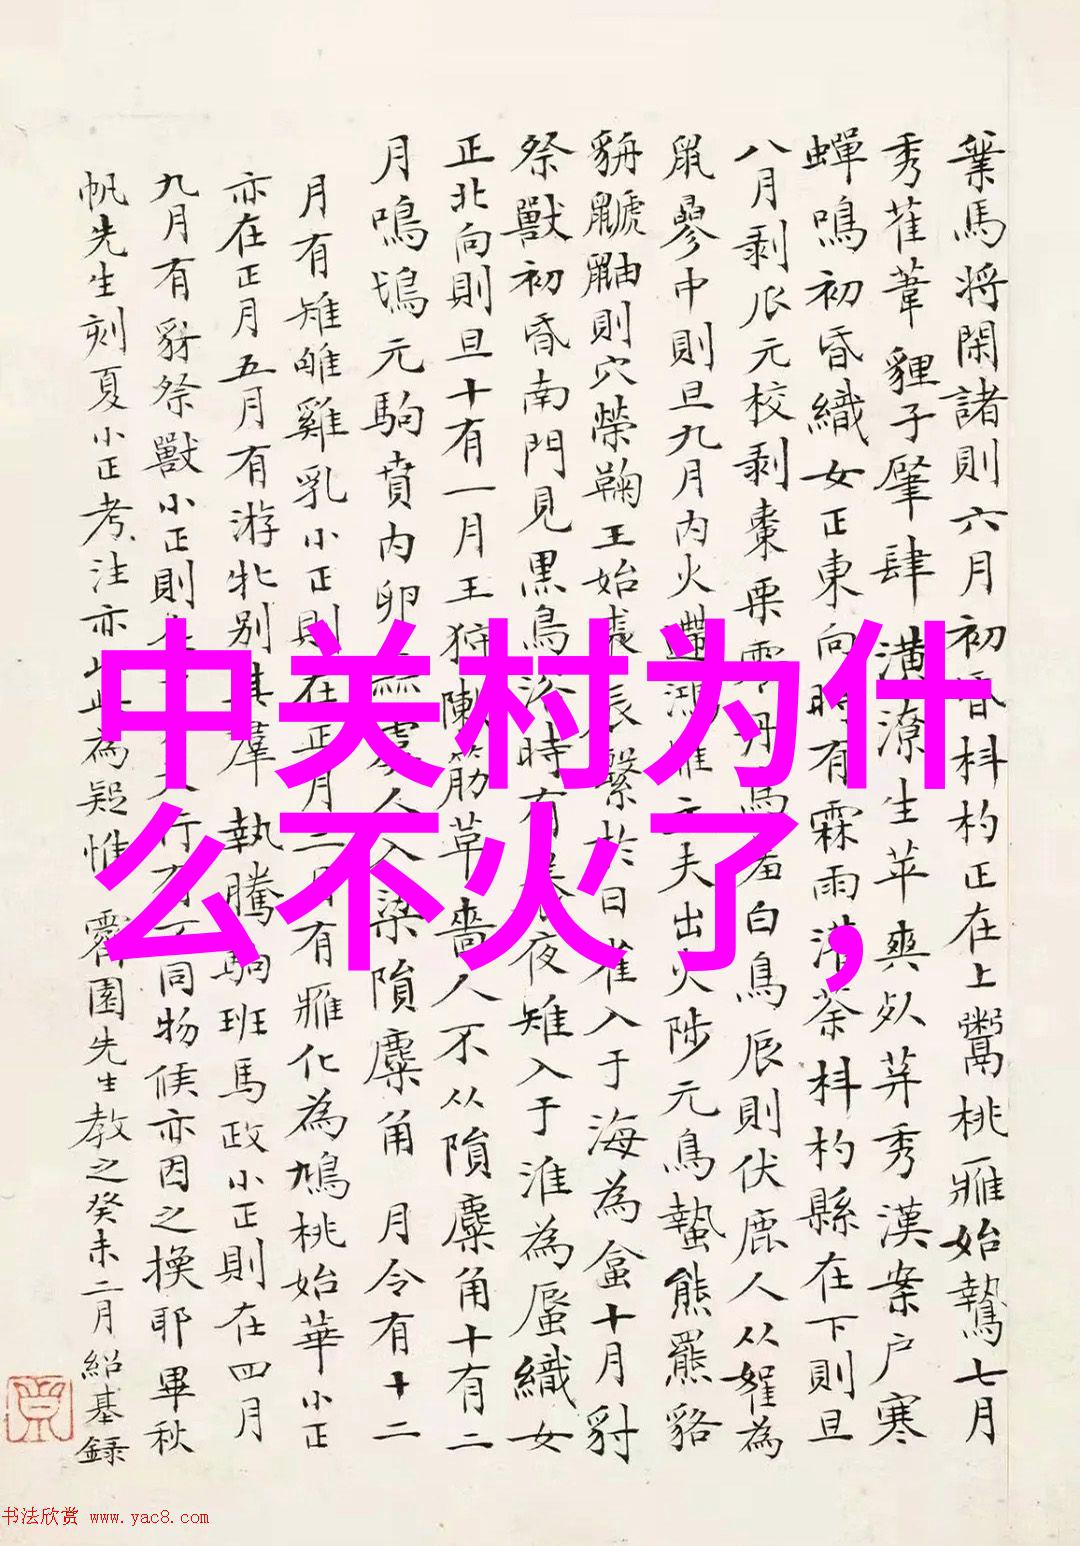 中关村为什
么不火了,
業馬将閑諸則六月初昏枓杓正在上鬻桃雁始鷙七月
秀雚葦貍子肇肆潢潦生苹爽死荓秀漢案户寒
蟬鳴初昏織女正東向時有霖雨灌荼枓杓縣在下則旦
八月剥瓜元校剥棗栗零丹鳥羞白鳥辰則伏鹿人从嬥為
鼠參中則旦九月内火遰鴻雁主夫出火陟元鳥蟄熊羆貉
貈鼶鼬則穴榮鞠王始裘辰繫於日雀入于海為盒十月豺
祭獸初昏南門見黑鳥浴時有養夜雉入于淮為蜃織女
正北向則旦十有一月王狩陳筋革嗇人不从隕麋角十有二
月鳴鳩元駒賁内卵蒜虞人入梁隕麋角 月令有十二
月有雉雊雞乳小正則在正月二月有雁化為鳩桃始華小正
亦在正月五月有游牝别其羣執騰駒班馬政小正則在四月
九月有豺祭獸小正則在十月大行有不同物候亦因之換耶畢秋
帆先生刻夏小正考注亦止此為疑惟 霽園先生教之癸未二月紹基録
书法欣赏 www.yac8.com